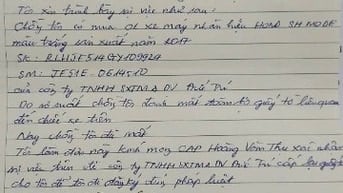 Tôi xin trình bày sự việc như sau:
Chồng tôi có mua 01 xe máy nhãn hiệu HOND SH MODE
màu trắng sản xuất năm
SK: RLHJF514GY109924
SM: JF51E-0614510
của công ty TNHH SXTM & DV Phú Trí
Do sơ suất chồng tôi đánh mất toàn bộ giấy tờ liên quan
đến chiếc xe trên
Nay chồng tôi đã mất
Tôi làm đơn này kính mong CAP Hoàng Văn Thụ xác nhận
sự việc trên để công ty TNHH SXTM & DV Phú Trí cấp lại giấy tờ
cho tôi để tôi đi đăng ký đúng pháp luật